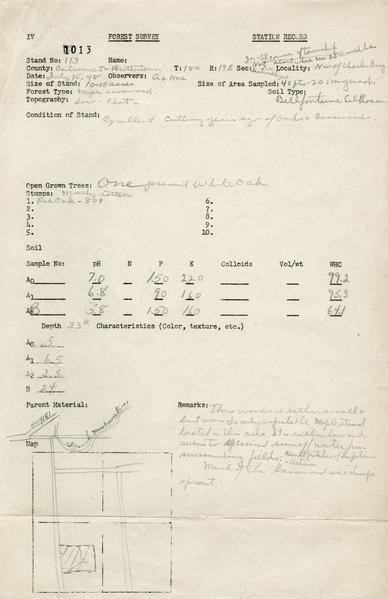 IV FOREST SURVEY STATION RECORD
1013
Stand No: 113 Name: In SE corner of township
County: Calumet Brothertown T: 18N R: 19E Sec: Locality: NW of Charles
Date: July 15, 48 Observers: A & me
Size of Stand: 10-15 acres Size of Area Sampled: 40 pts-20
Forest Type: Maple basswood Soil Type:
Topography: Low - Flat - Bellfontaine
Condition of Stand: Excellent Cutting years ago of Oaks & Basswoods.
Open Grown Trees: One present White Oak
Stumps: Mostly
1. Red Oak - 6.
2. 7.
3. 8.
4. 9.
5. 10.
Soil
Sample No: pH N P K Colloids Vol/wt WHC
A0 7.0 150 220 99.2
A1 6.8 90 160 95.3
B 5.8 150 160 64.1
Depth 33" Characteristics (Color, texture, etc.)
A0 .5
A1 6.5
A2 2.5
B 24
Parent Material: Remarks: This woods is rather small
but was the only reputable Maple stand
located in this area. It is rather low and
seems to receive some of water from
surrounding fields.
Map
Much of the Basswood was stump
sprout.